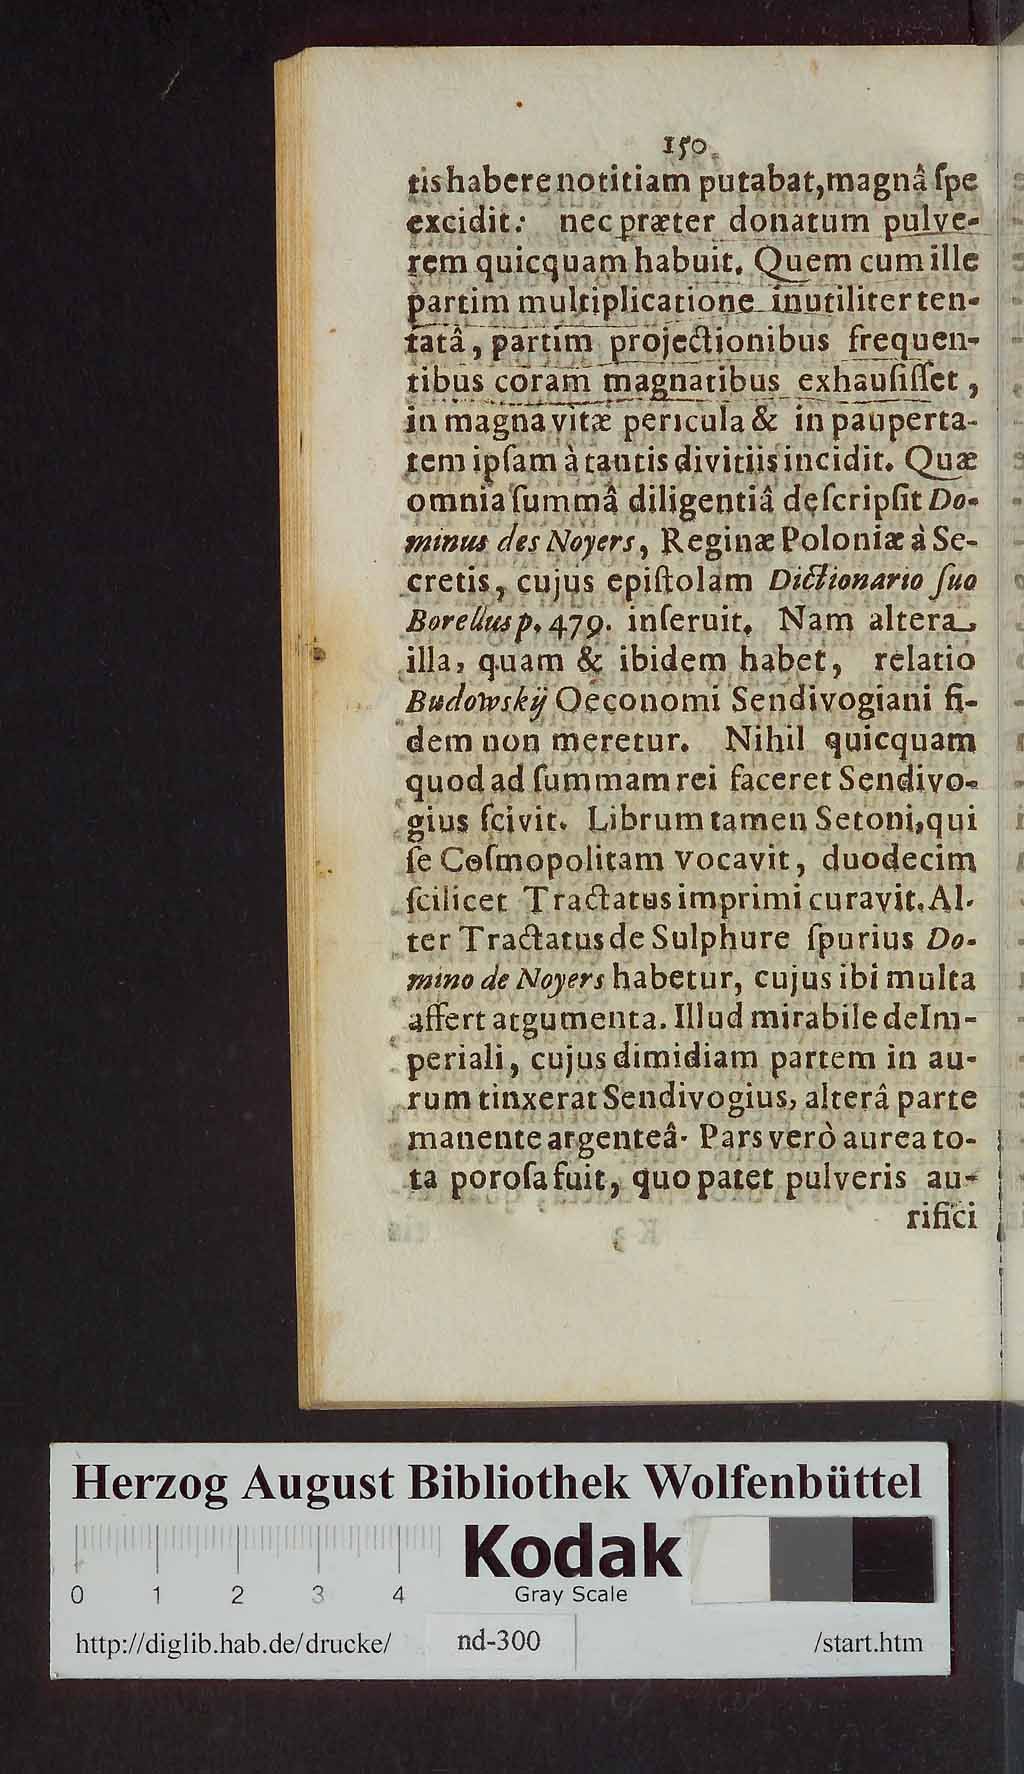 150.
tis habere notitiam putabat, magnâ ſpe
excidit: nec præter donatum pulve-
rem quicquam habuit. Quem cum ille
partim multiplicatione inutiliter ten-
tatâ, partim projectionibus frequen-
tibus coram magnatibus exhauſiſſet,
in magna vitæ pericula & in pauperta-
tem ipſam à tantis divitiis incidit. Quæ
omnia ſummâ diligentiâ deſcripſit Do-
minus des Noyers, Reginæ Poloniæ à Se-
cretis, cujus epiſtolam Dictionario ſuo
Borellus p. 479. inſeruit. Nam altera
illa, quam & ibidem habet, relatio
Budowskij Oeconomi Sendivogiani fi-
dem non meretur. Nihil quicquam
quod ad ſummam rei faceret Sendivo-
gius ſcivit. Librum tamen Setoni, qui
ſe Coſmopolitam vocavit, duodecim
ſcilicet Tractatus imprimi curavit. Al-
ter Tractatus de Sulphure ſpurius Do-
mino de Noyers habetur, cujus ibi multa
affert argumenta. Illud mirabile de Im-
periali, cujus dimidiam partem in au-
rum tinxerat Sendivogius, alterâ parte
manente argenteâ. Pars verò aurea to-
ta poroſa fuit, quo patet pulveris au-
rifici
Herzog August Bibliothek Wolfenbüttel
Kodak
Gray Scale
0 1 2 3 4
http://diglib.hab.de/drucke/ nd-300 /start.htm